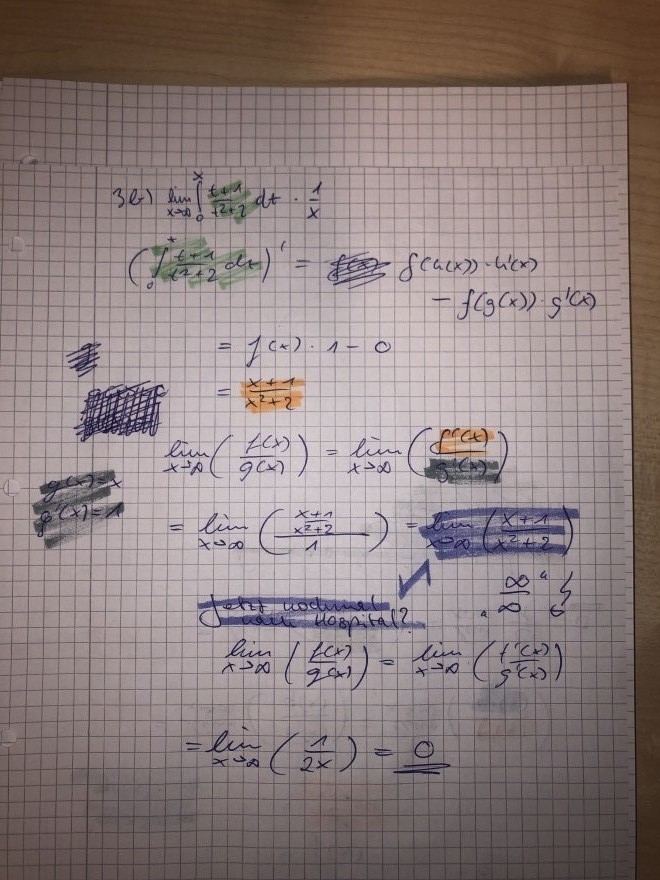 3b) lim x→∞ ∫₀ˣ (t+1)/(t²+2) dt · 1/x
(∫₀ˣ (t+1)/(t²+2) dt)' = f(h(x))·h'(x)
− f(g(x))·g'(x)
= f(x)·1 − 0
= (x+1)/(x²+2)
lim x→∞ (f(x)/g(x)) = lim x→∞ (f'(x)/g'(x))
g(x)=x
g'(x)=1
= lim x→∞ (((x+1)/(x²+2))/1) = lim x→∞ ((x+1)/(x²+2))
„∞/∞“
Jetzt nochmal
nach Hospital?
lim x→∞ (f(x)/g(x)) = lim x→∞ (f'(x)/g'(x))
= lim x→∞ (1/2x) = 0